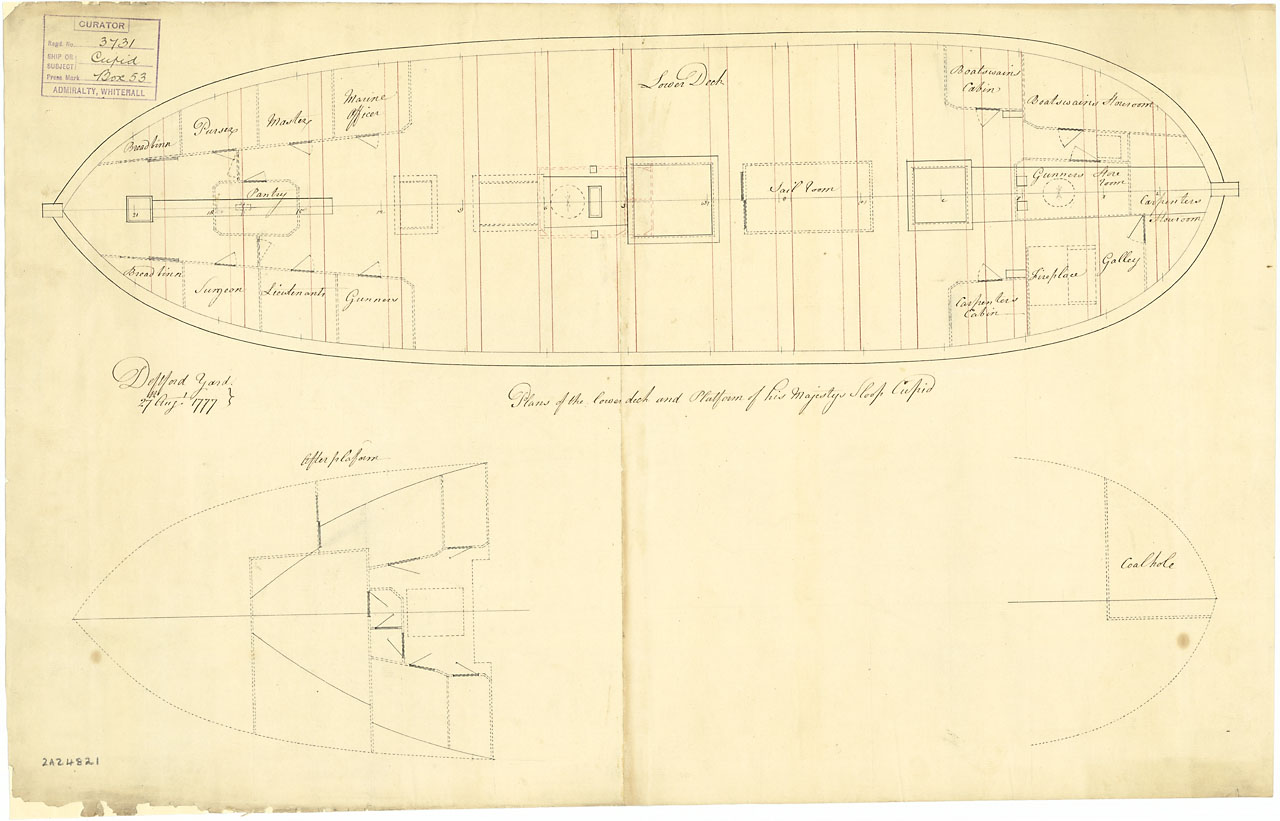 CURATOR
Regd. No. 3731
SHIP OR SUBJECT Cupid
Press Mark Box 53
ADMIRALTY, WHITEHALL
Lower Deck
Boatswains
Cabin
Boatswains Storeroom
Marine
Officer
Master
Purser
Bread binn
Pantry
Sail Room
Gunners Store
room
Carpenters
Storeroom
Bread binn
Surgeon
Lieutenants
Gunners
Carpenters
Cabin
Fireplace
Galley
Deptford Yard
27 Augt. 1777
Plans of the lower deck and Platform of his Majestys Sloop Cupid
After platform
Coalhole
2A24821